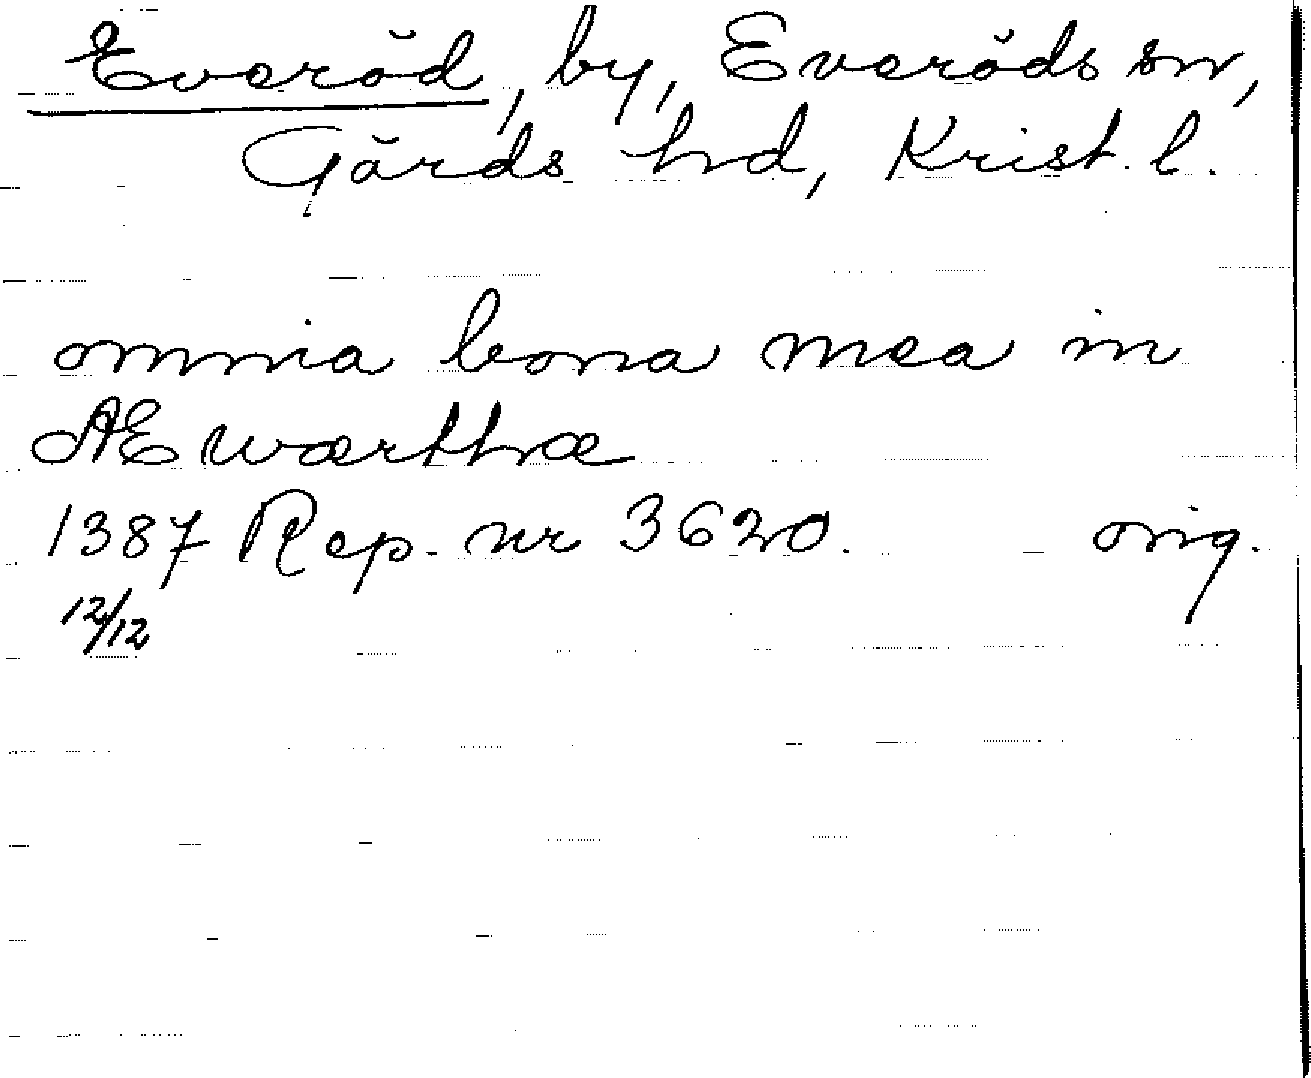 Everöd, by, Everöds sn,
Gärds hd, Krist. l.
omnia bona mea in
AEwærthæ
1387 Rep. nr 3620. orig.
12/12